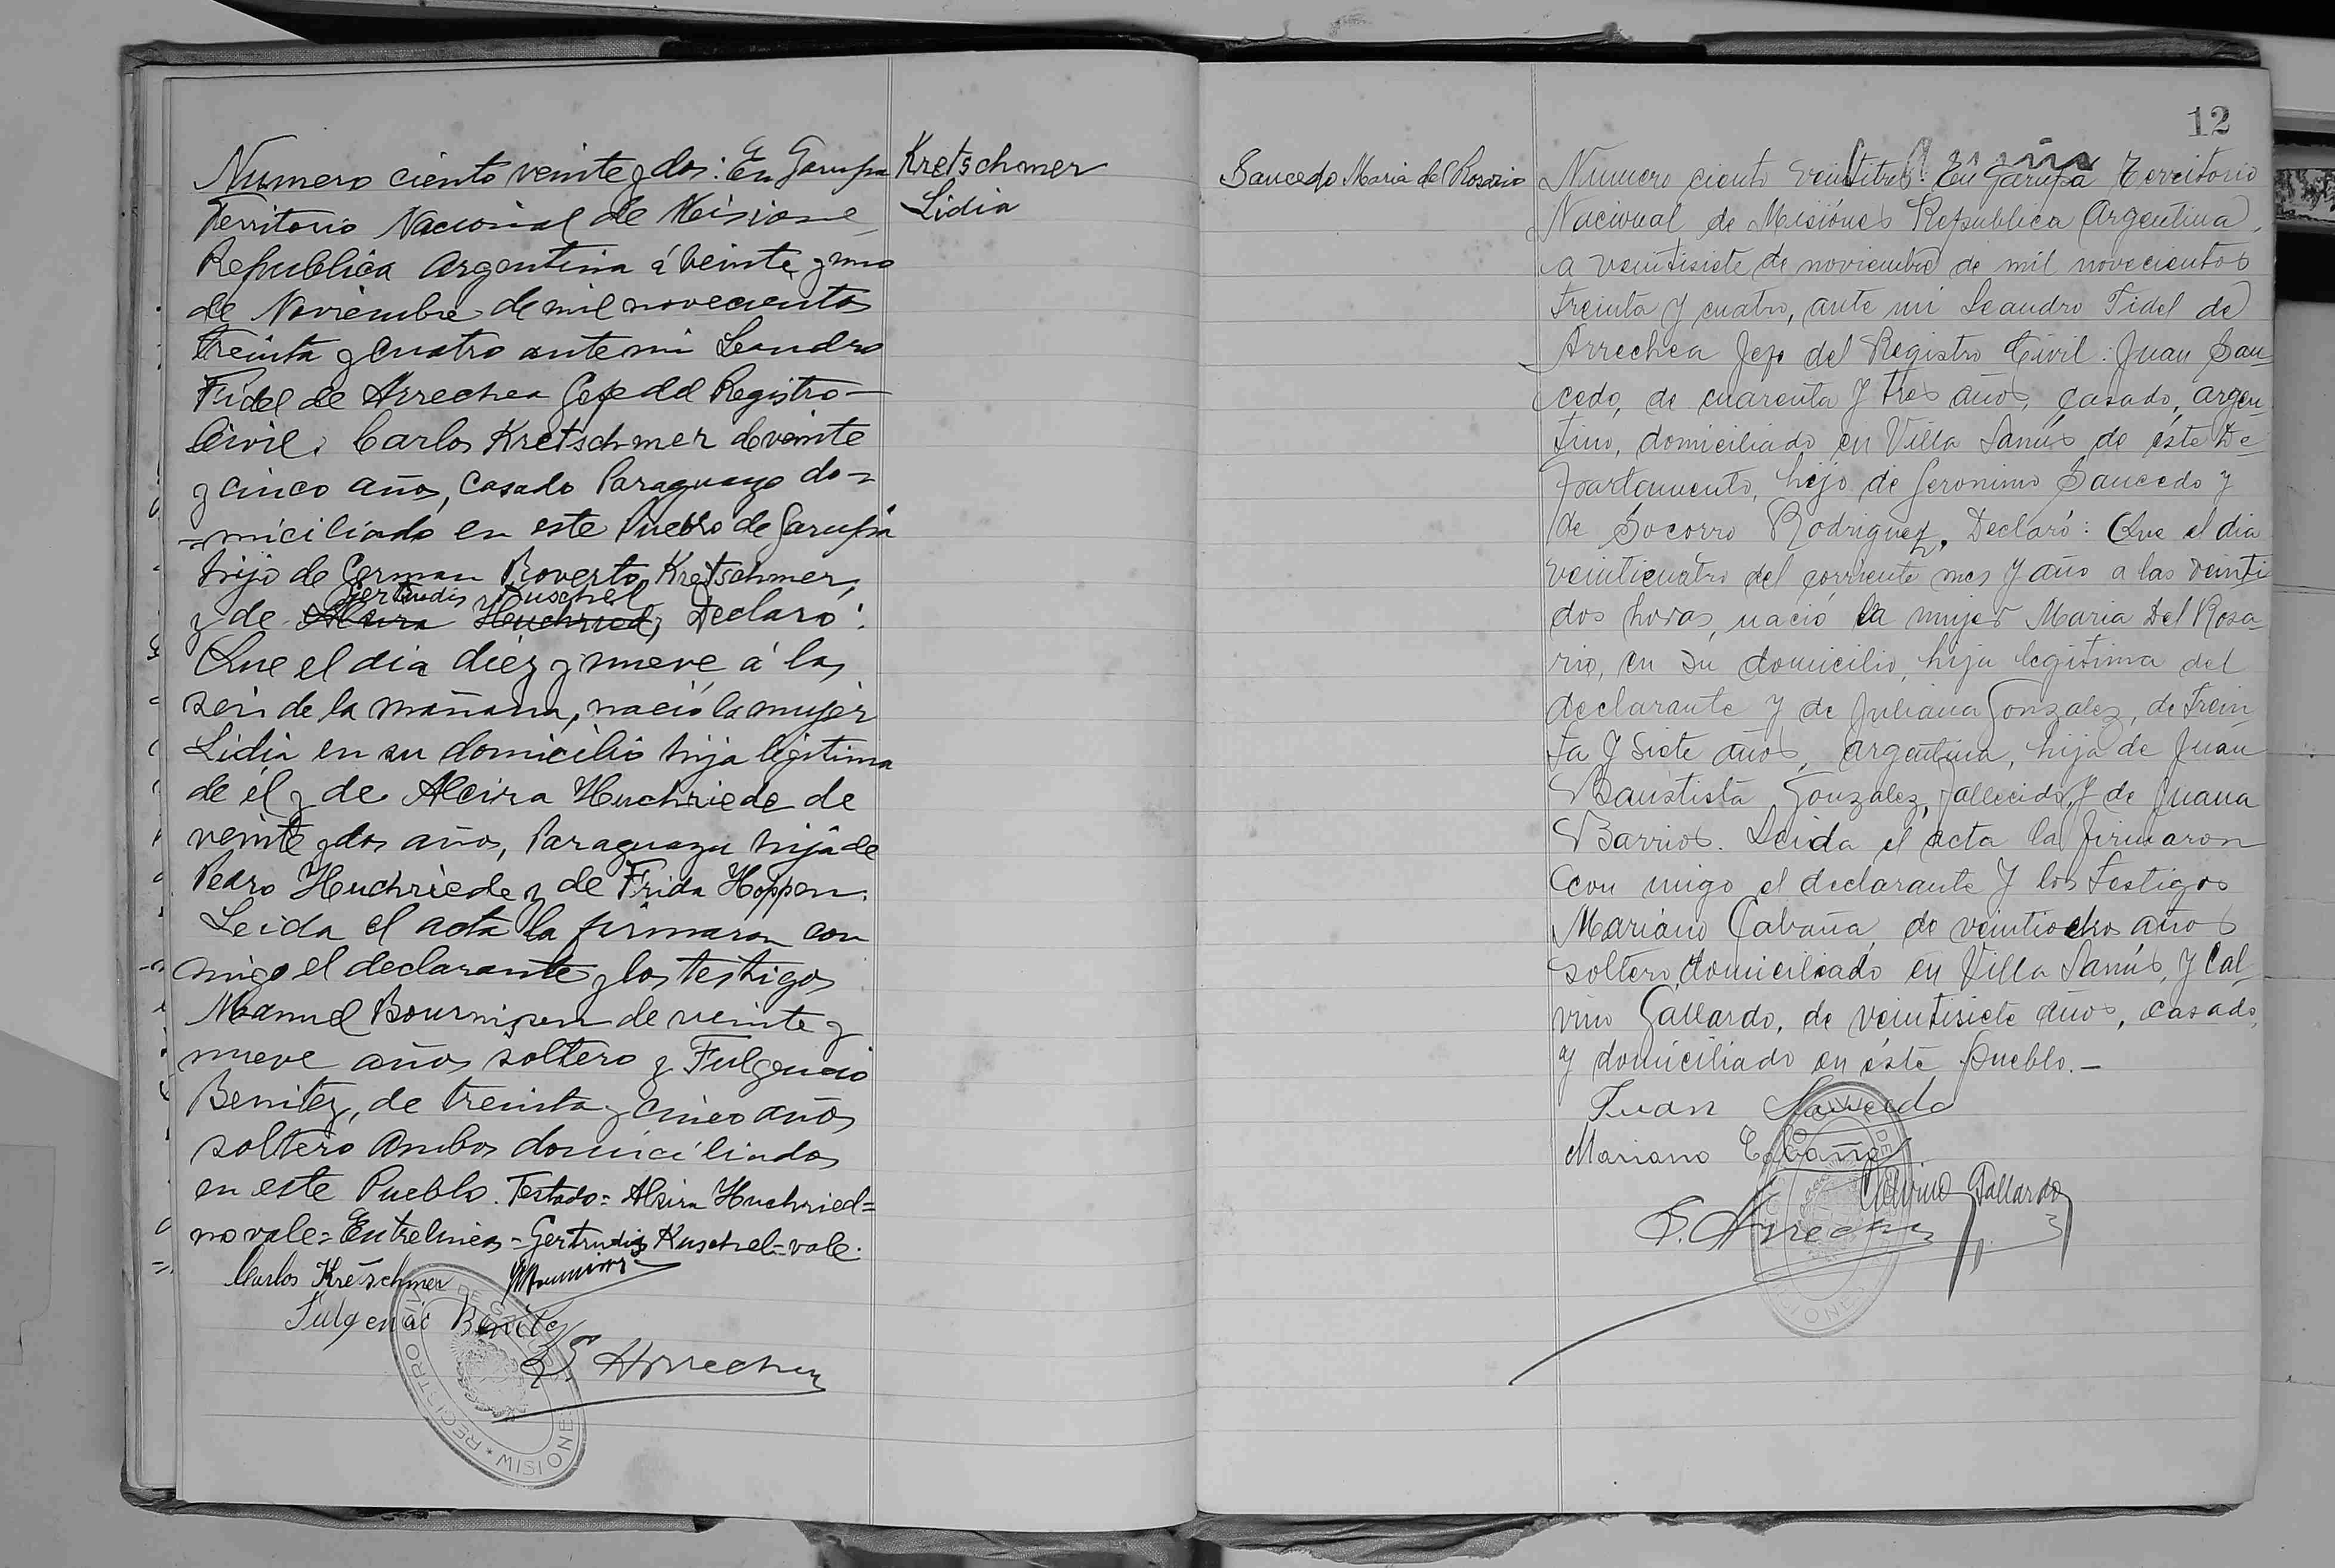 Kretschmer
Lidia
Numero ciento veinte y dos: En Garupa
Territorio Nacional de Misione_
Republica Argentina á veinte y uno
de Noviembre de mil novecientos
treinta y cuatro ante mi Leandro
Fidel de Arrechea Gefe del Registro—
Civil. Carlos Kretschmer de veinte
y cinco años, casado Paraguayo do=
=miciliado en este Pueblo de Garupa
hijo de German Roverto Kretschmer,
Gertrudis Kuschel
y de Alcira Huchried, Declaro:
Que el dia diez y nueve á las
seis de la mañana, nació la mujer
Lidia en su domicilio hija legitima
de él y de Alcira Huchriede de
veinte y dos años, Paraguaya hija de
Pedro Huchriede y de Frida Hoppen.
Leida el acta la firmaron con
migo el declarante y los testigos
Manuel de veinte y
nueve años soltero y Fulgencio
Benitez, de treinta y cinco años
soltero ambos domiciliados
en este Pueblo. Testado= Alcira Huchried=
no vale= Entrelineas= Gertrudis Kuschel= vale.
Carlos Kreschmer
Fulgencio Benitez
F. Arrechea
REGISTRO CIVIL DE GARUPA * MISIONES
12
Saucedo Maria del Rosario
Numero ciento veintitres. En Garupá Territorio
Nacional de Misiónes Republica Argentina,
a veintisiete de noviembre de mil novecientos
treinta y cuatro, ante mi Leandro Fidel de
Arrechea Jefe del Registro Civil: Juan Sau-
cedo, de cuarenta y tres años, casado, argen-
tino, domiciliado en Villa Lanús de éste De-
partamento, hijo de Geronimo Saucedo y
de Socorro Rodriguez, Declaró: Que el dia
veinticuatro del corriente mes y año a las veinti
dos horas, nació la mujer Maria Del Rosa-
rio, en su domicilio, hija legitima del
declarante y de Juliana Gonzalez, de trein-
ta y siete años, argentina, hija de Juan
Baustista Gonzalez, fallecido, y de Juana
Barrios. Leida el acta la firmaron
con migo el declarante y los testigos
Mariano Cabaña, de veintiocho años
soltero, domiciliado en Villa Lanús, y Cal-
vino Gallardo, de veintisiete años, casado,
y domiciliado en éste Pueblo.—
Juan Saucedo
Mariano Cabaña
Calvino Gallardo
F. Arrechea